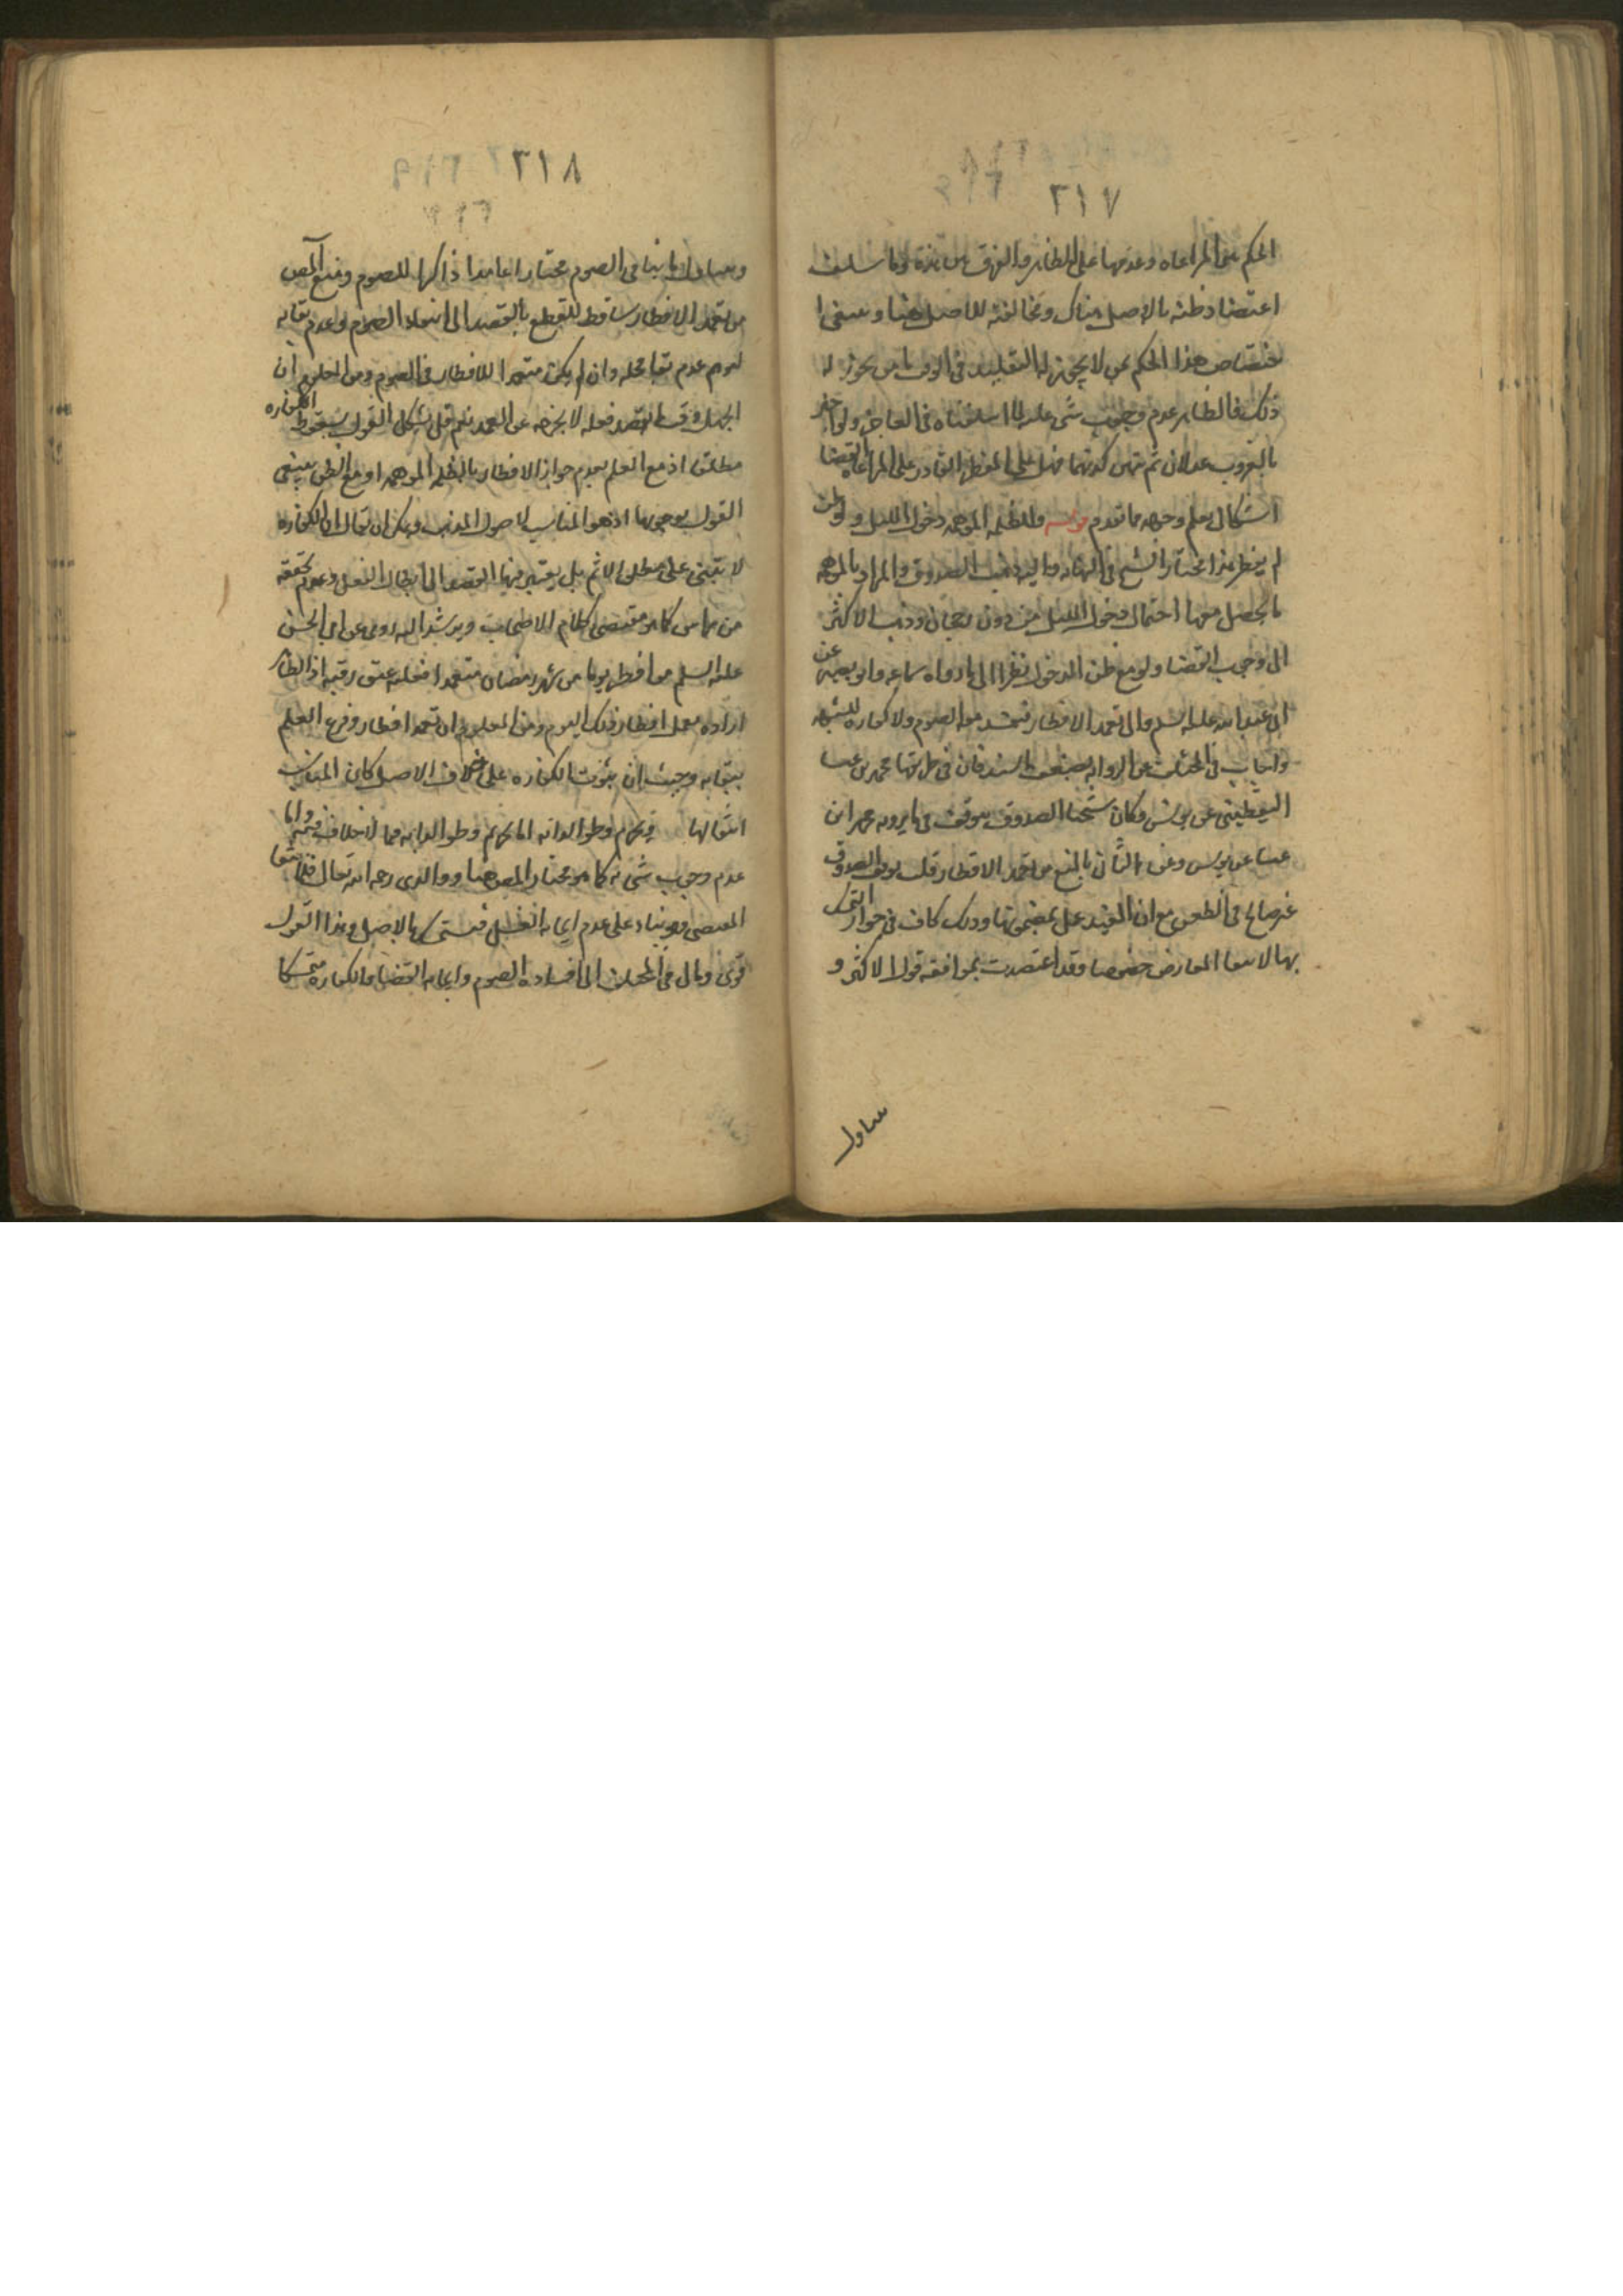 ٢١٧
الحكم بين المراعاه وعدمها على الظاهر والفرق بين هذه وما سلف
اعتضاد ظنه بالاصل هناك ومخالفته للاصل هنا وينبغي ا
ختصاص هذا الحكم بمن لا يجوز له التقليد في الوقت اما من يجوز له
ذلك فالظاهر عدم وجوب شي عليه لما اسلفناه في العاجز ولو اخبر
بالغروب عدلان ثم تبين كذبهما فهل على المفطر القادر على المراعاه القضا
اشكال يعلم وجهه مما تقدم قوله وللظلمه الموهمه دخول الليل ولو ظن
لم يفطر هذا مختار الشيخ في النهايه واليه ذهب الصدوق والمراد بالموهمه
ما يحصل معها احتمال دخول الليل من دون رجحان وذهب الاكثر
الى وجوب القضا ولو مع ظن الدخول نظرا الى ما رواه سماعه وابو بصير عن
ابي عبد الله عليه السلم والى تعمد الافطار فيفسد معه الصوم ولا كفاره للشبهه
واجاب في المختلف عن الروايه بضعف السند فان في طريقها محمد بن عيسا
اليقطيني عن يونس وكان شيخنا الصدوق يتوقف في ما يرويه محمد ابن
عيسا عن يونس وعن الثاني بالمنع من تعمد الافطار قلت توقف الصدوق
غير صالح في الطعن مع ان المفيد عمل بمضمونها وذلك كاف في جواز التمسك
بها لانتفا المعارض خصوصا وقد اعتضدت بموافقه قول الاكثر و
تناول
٢١٨
وتناول ما ينافي الصوم مختارا عامدا ذاكرا للصوم ومنع المص
من تعمد الافطار ساقط للقطع بالقصد الى انتفاء الصوم وعدم بقايه
لتوهم عدم بقا محله وان لم يكن متعمدا للافطار في الصوم ومن المعلوم ان
الجهل وقت القصد فعله لا يخرجه عن العمد نعم قد يشكل القول بسقوط الكفاره
مطلقا اذ مع العلم بعدم جواز الافطار بالظلمه الموهمه او مع الظن ينبغي
القول بوجوبها اذ هو المناسب لاصول المذهب ويمكن ان يقال ان الكفاره
لا تبتني على مطلق الاثم بل يعتبر فيها القصد الى ابطال الفعل وعدم تحققه
من هنا كما هو مقتضى كلام الاصحاب ويرشد اليه روى عن ابي الحسن
عليه السلم من افطر يوما من شهر رمضان متعمدا فعليه عتق رقبه اذ الظاهر
اراده تعمد افطار ذلك اليوم ومن المعلوم ان تعمد افطاره فرع العلم
ببقايه وحيث ان ثبوت الكفاره على خلاف الاصل كان المناسب
انتفا لها ويحرم وطو الدابه اما تحريم وطو الدابه فمما لا خلاف فيه واما
عدم وجوب شي به كما هو مختار المص هنا ووالدي رحمه الله تعالى فلانتفا
المقتضي وهو بناء على عدم ايجابه الغسل فيتمسك بالاصل وهذا القول
قوي ومال في المختلف الى افساده الصوم وايجابه القضا والكفاره متمسكا